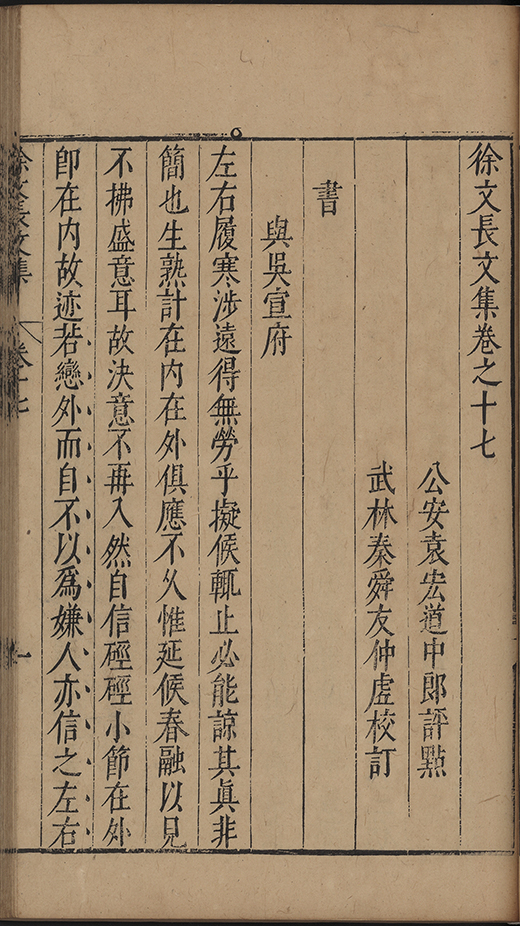 徐文長文集卷之十七
公安袁宏道中郎評點
武林秦舜友仲虛校訂
書
與吳宣府
左右履寒涉遠得無勞乎擬候輒止必能諒其眞非
簡也生熟計在內在外俱應不久惟延候春融以見
不拂盛意耳故決意不再入然自信硜硜小節在外
卽在內故迹若戀外而自不以爲嫌人亦信之左右
徐文長文集
卷十七
一